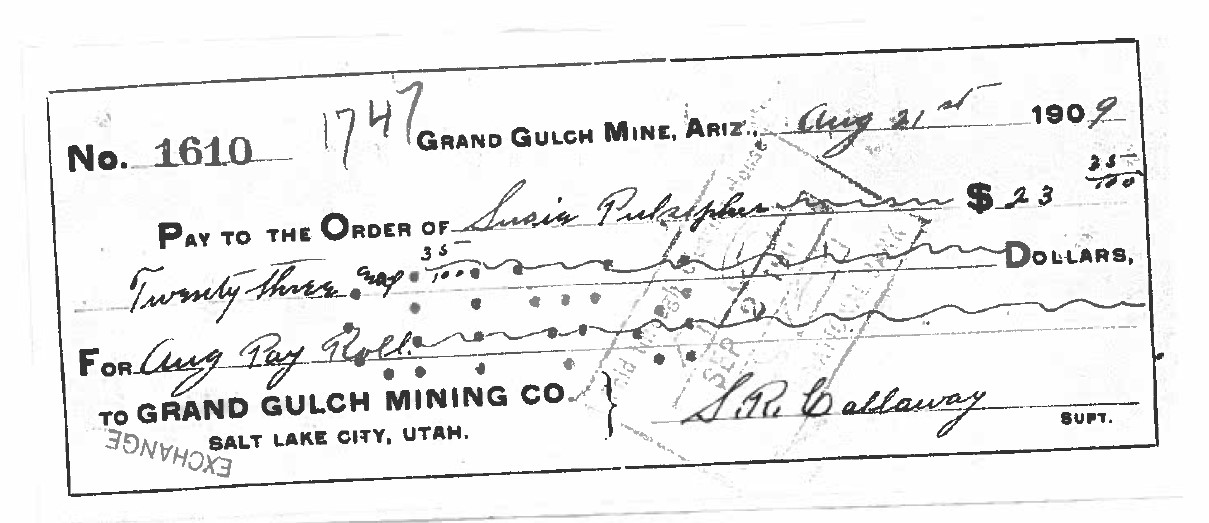 No. 1610 1747 GRAND GULCH MINE, ARIZ., Aug 21st 1909
PAY TO THE ORDER OF Susie Pulsipher $ 23 35/100
Twenty three and 35/100 DOLLARS,
FOR Aug Pay Roll
TO GRAND GULCH MINING CO.
SALT LAKE CITY, UTAH.
S.R. Callaway SUPT.
EXCHANGE
SEP 2